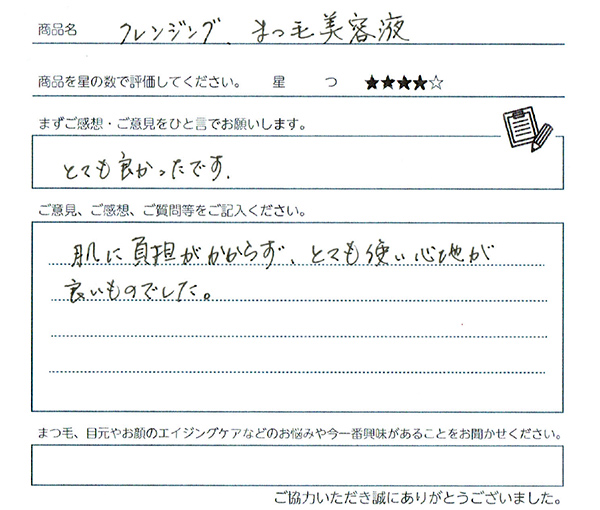 商品名 クレンジング、まつ毛美容液
商品を星の数で評価してください。 星 つ ★★★★☆
まずご感想・ご意見をひと言でお願いします。
とても良かったです.
ご意見、ご感想、ご質問等をご記入ください。
肌に負担がかからず、とても使い心地が
良いものでした。
まつ毛、目元やお顔のエイジングケアなどのお悩みや今一番興味があることをお聞かせください。
ご協力いただき誠にありがとうございました。